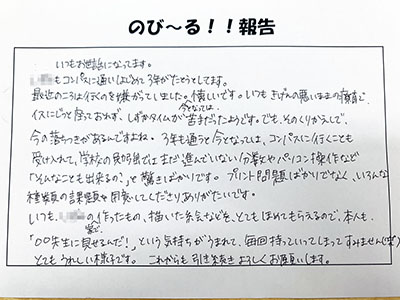 のび〜る！！報告
いつもお世話になってます。
もコンパスに通いはじめて3年がたとうとしてます。
最近のころは行くのを嫌がっていました。懐しいです。いつもきげんの悪いままの療育で、
イスにじっと座っておれず、しずかタイムが苦手だったようです。でも、そのくりかえしで、
今となっては、
今の落ちつきがあるんですよね。3年も通うと今となっては、コンパスに行くことも
受け入れて、学校の勉強ではまだ進んでいない分野やパソコン操作など
「そんなことも出来るの？」と驚きばかりです。プリント問題ばかりでなく、いろんな
種類の課題を用意してくださりありがたいです。
いつも、の作ったもの、描いた糸などを、とてもほめてもらえるので、本人も
「〇〇先生に見せるんだ！」という気持ちがうまれて、毎回持っていってしまってすみません(笑)
とてもうれしい様子です。これからも引き続きよろしくお願いします。